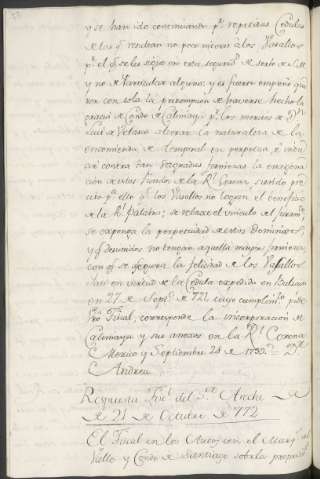 y se han ido continuando pr. repetidas Cedulas
de las qe. rendian no poca inores a los Vasallos
pr. el qe. se les sigue en esta
y no de particular alguno; y es fuerte empeño que
rer con sola la presumpcion de haverse hecho la
gracia de Conde de Calimaya pr. los meritos de Dn.
Luis de Velasco alterar la naturaleza de la
encomienda de temporal en perpetua, e indu
cir contra tan sagradas terminas la enagena
cion de estas fincas de la Rl. Corona, siendo pre
ciso pr. ello qe. los Vasallos no logren el beneficio
de la Rl. Palabra; se relaxe el vinculo del juramto.
se exponga la perpetuidad de estos Dominios,
y qe. desunidos no tengan aquella mayor firmeza
con qe. se asegura la felicidad de los Vasallos
Assi en virtud de la Cedula expedida en Balsain
en 27 de Septe. de 721 cuyo cumplimto. pide
Vro. Fiscal, corresponde la incorporacion de
Calimaya y sus anexos en la Rl. Corona
Mexico y Septiembre 20 de 1750 = Dr.
Andreu
Respuesta Fisl. del Sr. Areche de
de 21 de Octubre de 772
El Fiscal en los Autos con el Marqs. del
Valle y Conde de Santiago sobre la propiedad